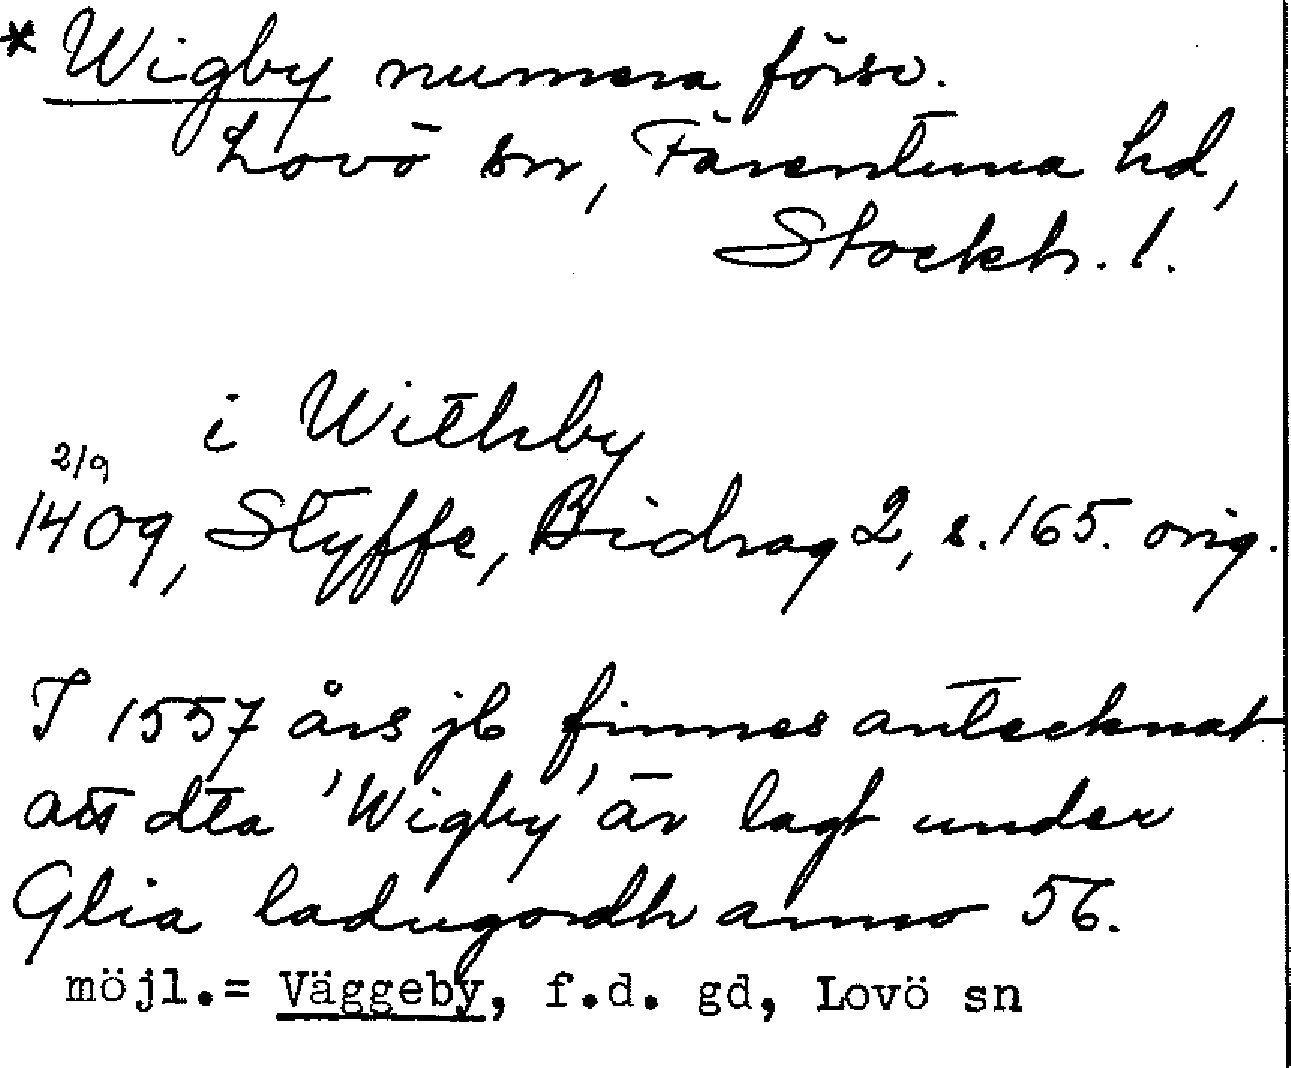 * Wigby numera försv.
Lovö sn, Färentuna hd,
Stockh. l.
i Withby
2/9
1409, Styffe, Bidrag 2, s. 165. orig.
I 1557 års jb finnes antecknat
att dta 'Wigby' är lagt under
Glia ladugordh anno 56.
möjl.= Väggeby, f.d. gd, Lovö sn